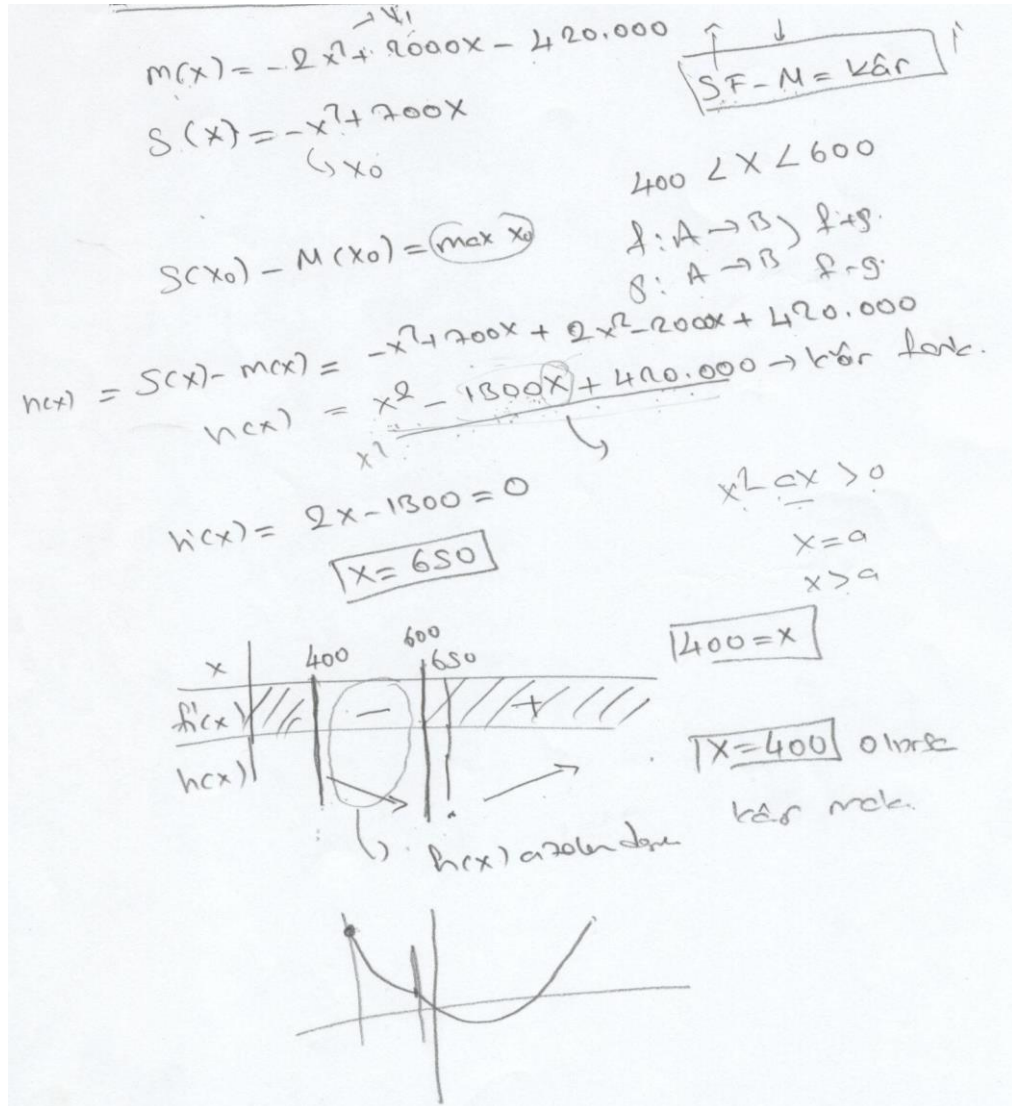 m(x) = -2x² + 2000x - 420.000
SF - M = kâr
S(x) = -x² + 700x
↳ x₀
400 < x < 600
S(x₀) - M(x₀) = max x₀
f: A → B } f+g.
g: A → B f-g.
h(x) = S(x) - m(x) = -x² + 700x + 2x² - 2000x + 420.000
h(x) = x² - 1300x + 420.000 → kâr fonk.
x²
h'(x) = 2x - 1300 = 0
x = 650
x² ax > 0
x = a
x > a
400 = x
x 400 600 650
h'(x) - +
h(x)
x = 400 olursa
kâr mak.
h(x) azalan